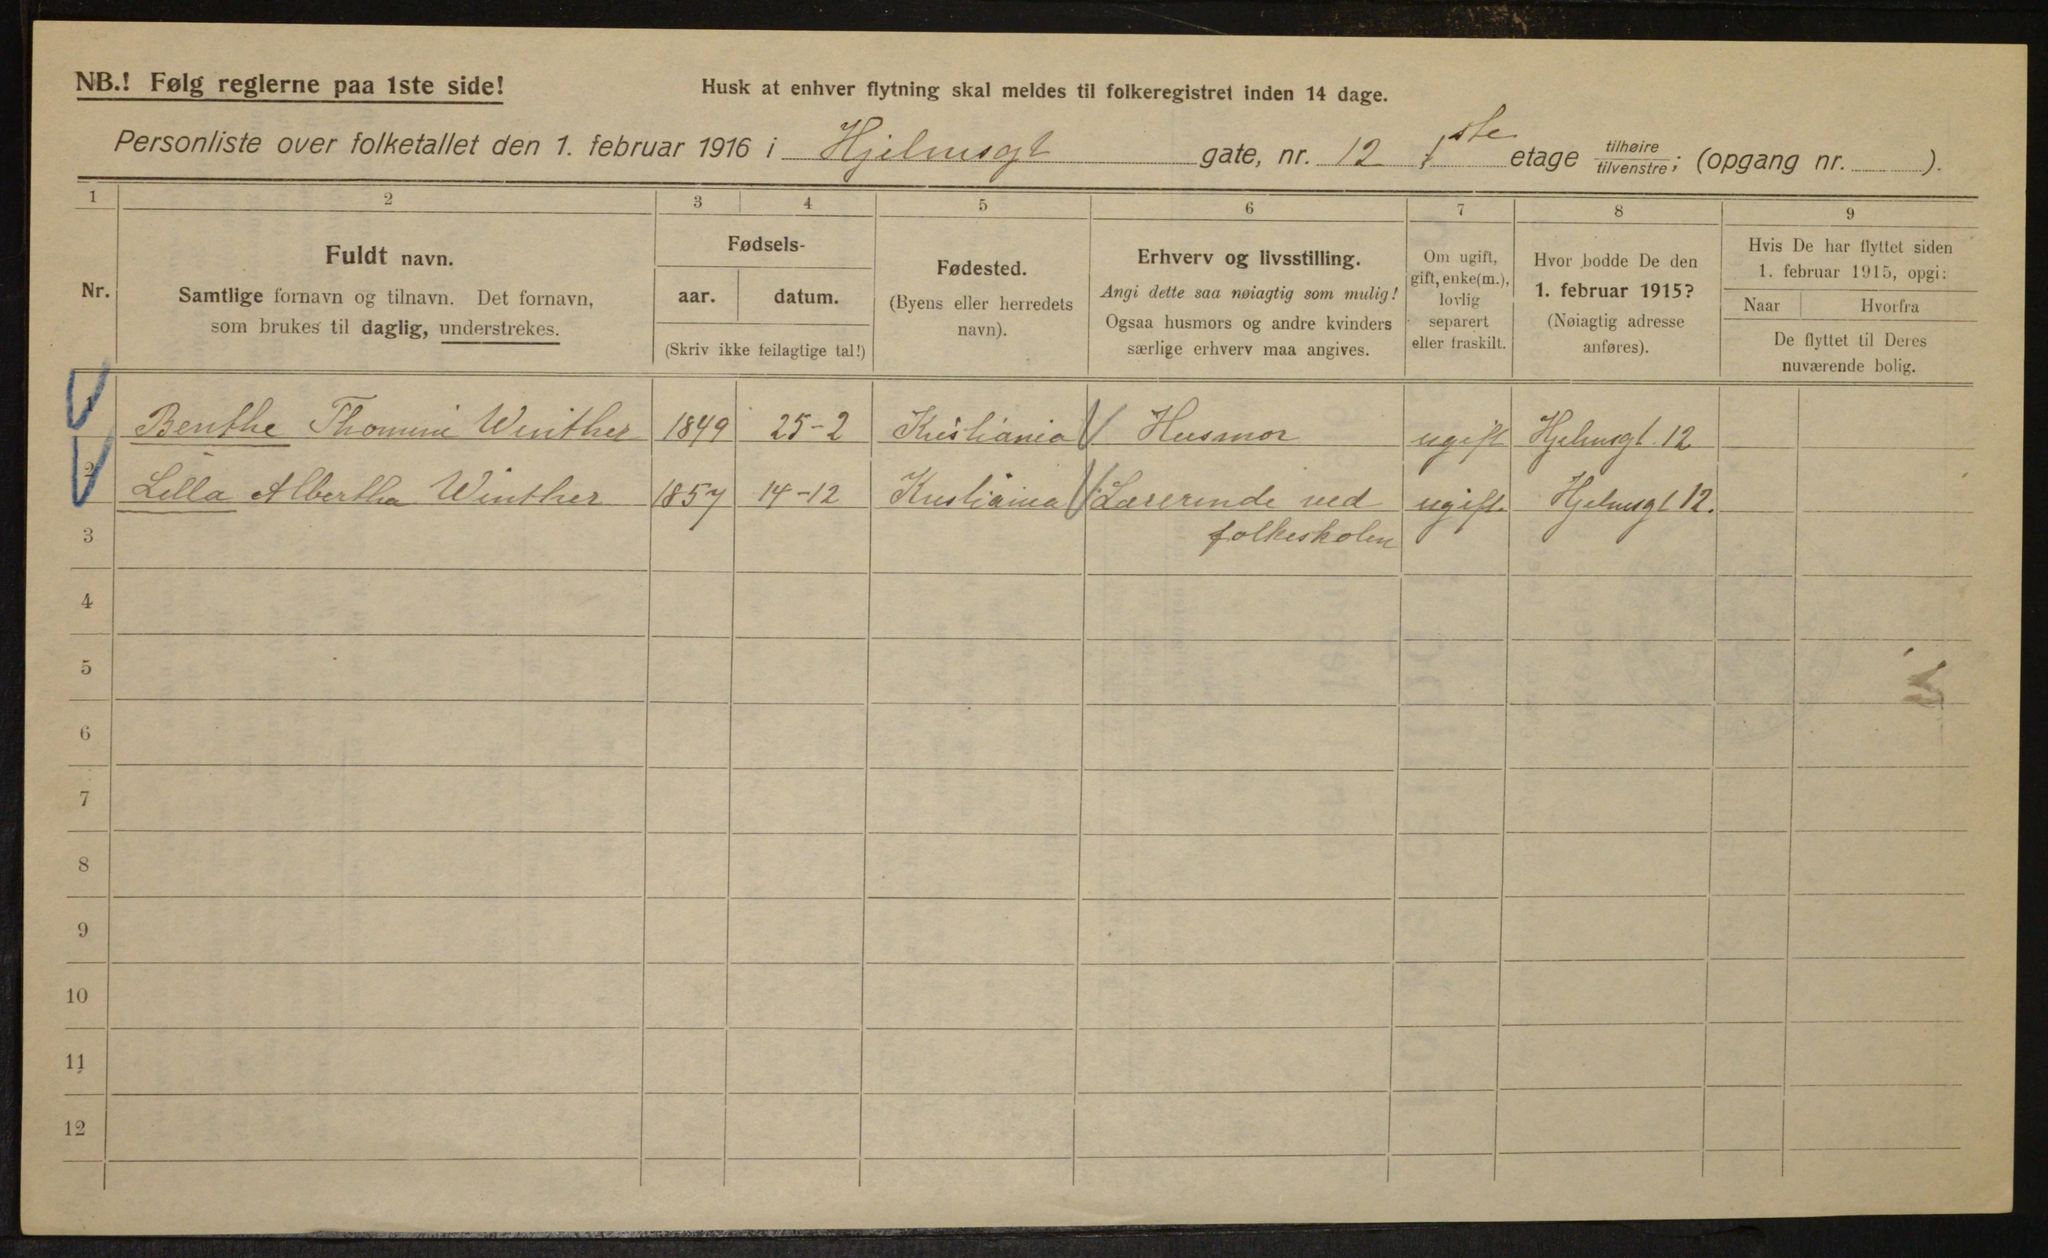 NB.! Følg reglerne paa 1ste side!
Husk at enhver flytning skal meldes til folkeregistret inden 14 dage.
Personliste over folketallet den 1. februar 1916 i Hjelmsgt gate, nr. 12 1ste etage tilhøire/tilvenstre; (opgang nr. ).
1 2 3 4 5 6 7 8 9
Nr.
Fuldt navn.
Samtlige fornavn og tilnavn. Det fornavn,
som brukes til daglig, understrekes.
Fødsels-
aar. datum.
(Skriv ikke feilagtige tal!)
Fødested.
(Byens eller herredets
navn).
Erhverv og livsstilling.
Angi dette saa nøiagtig som mulig!
Ogsaa husmors og andre kvinders
særlige erhverv maa angives.
Om ugift,
gift, enke(m.),
lovlig
separert
eller fraskilt.
Hvor bodde De den
1. februar 1915?
(Nøiagtig adresse
anføres).
Hvis De har flyttet siden
1. februar 1915, opgi:
Naar Hvorfra
De flyttet til Deres
nuværende bolig.
1 Benthe Thomine Winther 1849 25-2 Kristiania Husmor ugift Hjelmsgt. 12
2 Lilla Albertha Winther 1857 14-12 Kristiania Lærerinde ved ugift. Hjelmsgt 12.
3 folkeskolen
4
5
6
7
8
9
10
11
12